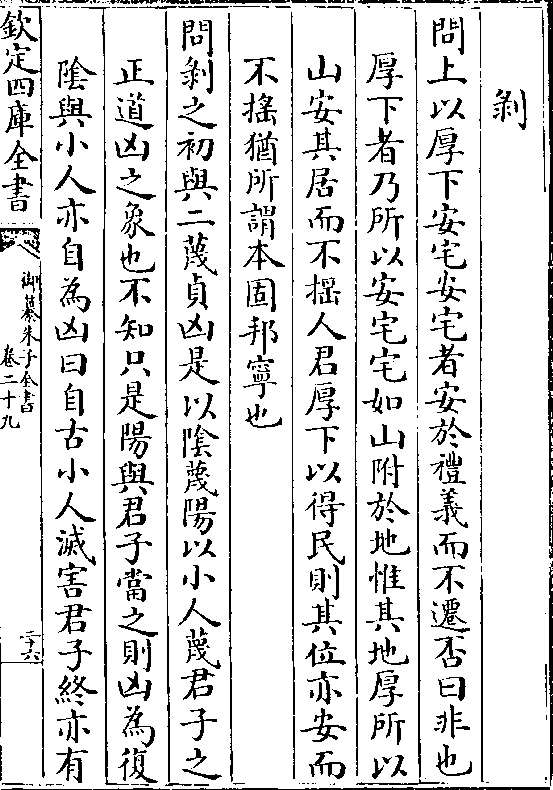 剝
問上以厚下安宅安宅者安於禮義而不遷否曰非也
厚下者乃所以安宅宅如山附於地惟其地厚所以
山安其居而不揺人君厚下以得民則其位亦安而
不揺猶所謂本固邦寧也
問剝之初與二蔑貞凶是以陰蔑陽以小人蔑君子之
正道凶之象也不知只是陽與君子當之則凶為復
陰與小人亦自為凶曰自古小人滅害君子終亦有
欽定四庫全書
御纂朱子全書
卷二十九
三十六